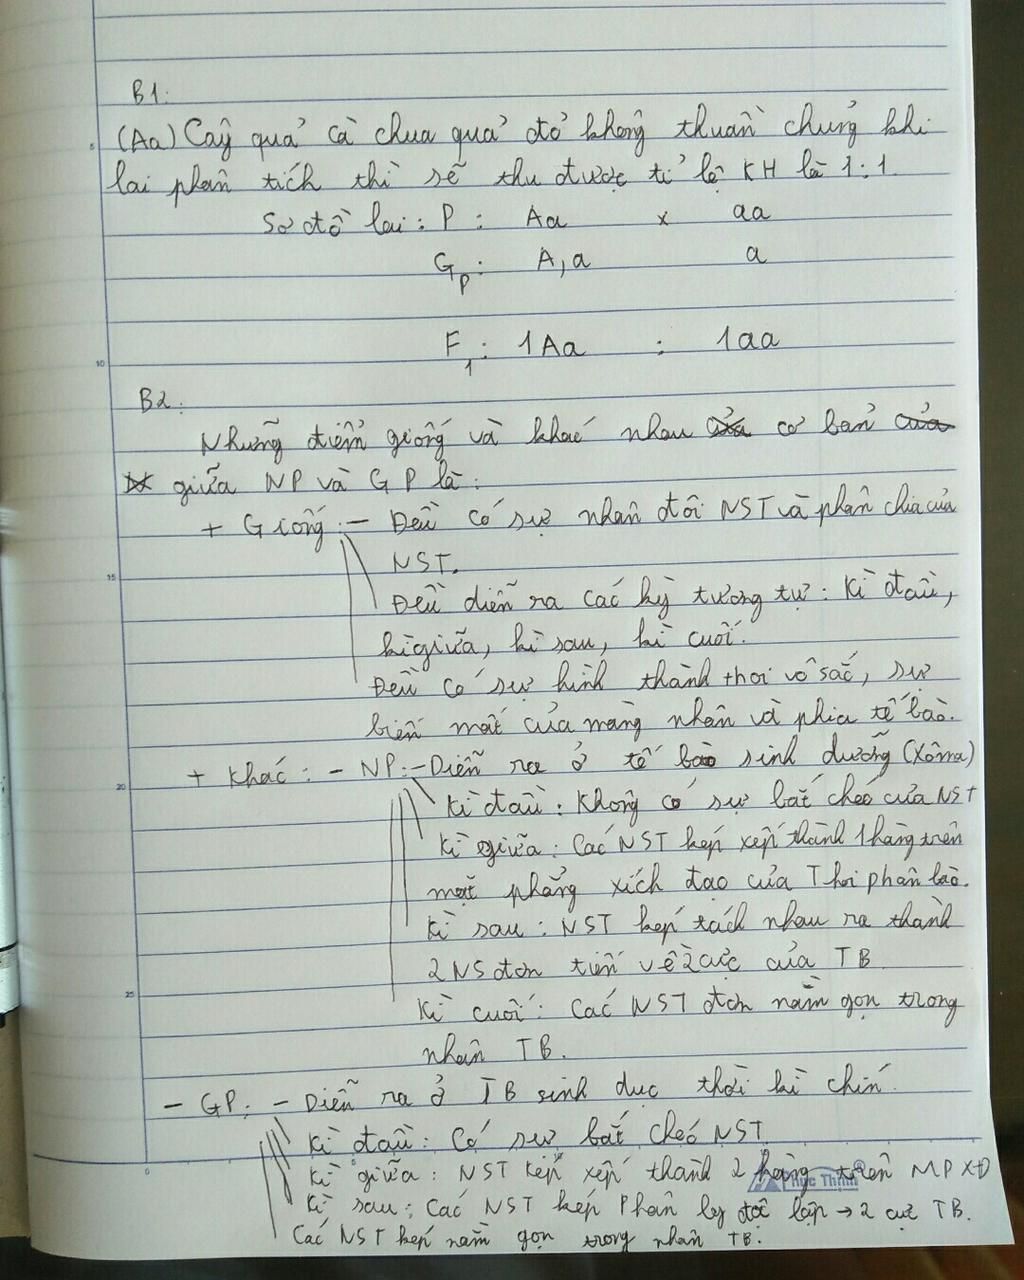 B1:
(Aa) Cây quả cà chua quả đỏ không thuần chủng khi
lai phân tích thì sẽ thu được tỉ lệ KH là 1:1.
Sơ đồ lai: P: Aa x aa
Gp: A,a a
F1: 1Aa : 1aa
B2:
Những điểm giống và khác nhau của cơ bản của
giữa NP và GP là:
+ Giống: - Đều có sự nhân đôi NST và phân chia của
NST.
Đều diễn ra các kỳ tương tự: Kì đầu,
kì giữa, kì sau, kì cuối.
Đều có sự hình thành thoi vô sắc, sự
biến mất của màng nhân và phia tế bào.
+ Khác: - NP: - Diễn ra ở tế bào sinh dưỡng (Xôma)
Kì đầu: Không có sự bắt chéo của NST
Kì giữa: Các NST kép xếp thành 1 hàng trên
mặt phẳng xích đạo của Thoi phân bào.
Kì sau: NST kép tách nhau ra thành
2 NS đơn tiến về 2 cực của TB
Kì cuối: Các NST đơn nằm gọn trong
nhân TB.
- GP: - Diễn ra ở TB sinh dục thời kì chín.
Kì đầu: Có sự bắt chéo NST
Kì giữa: NST kép xếp thành 2 hàng trên MPXĐ
Phúc Thịnh
Kì sau: Các NST kép Phân ly độc lập → 2 cực TB.
Các NST kép nằm gọn trong nhân TB.